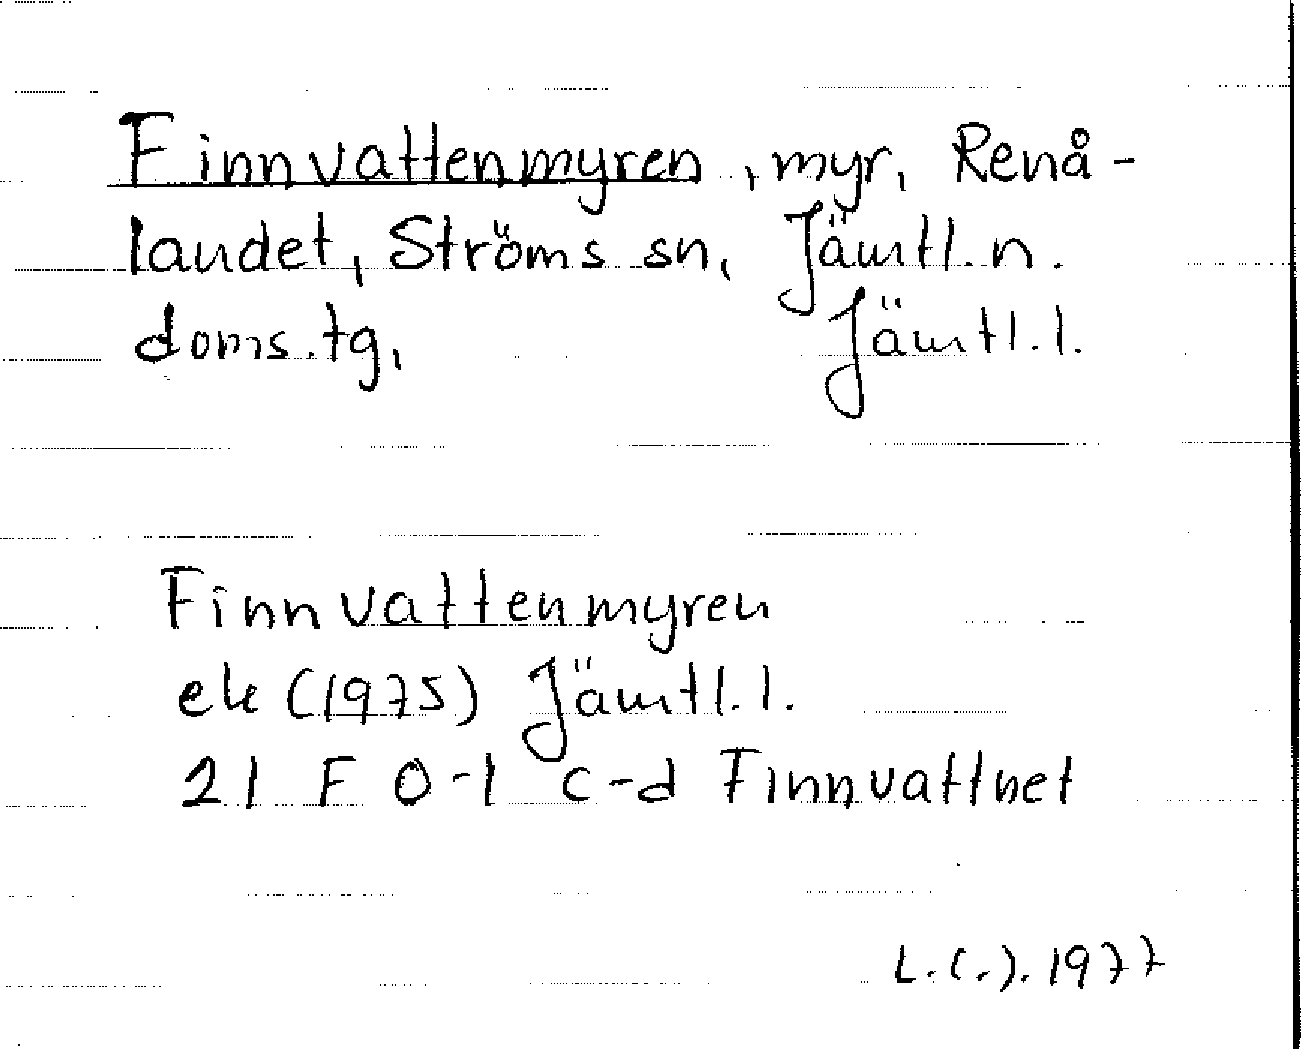 Finnvattenmyren, myr, Renå-
landet, Ströms sn, Jämtl. n.
doms.tg, Jämtl. l.
Finnvattenmyren
ek (1975) Jämtl. l.
21 F 0-1 c-d Finnvattnet
L.(.). 1977